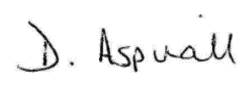 D. Aspinall